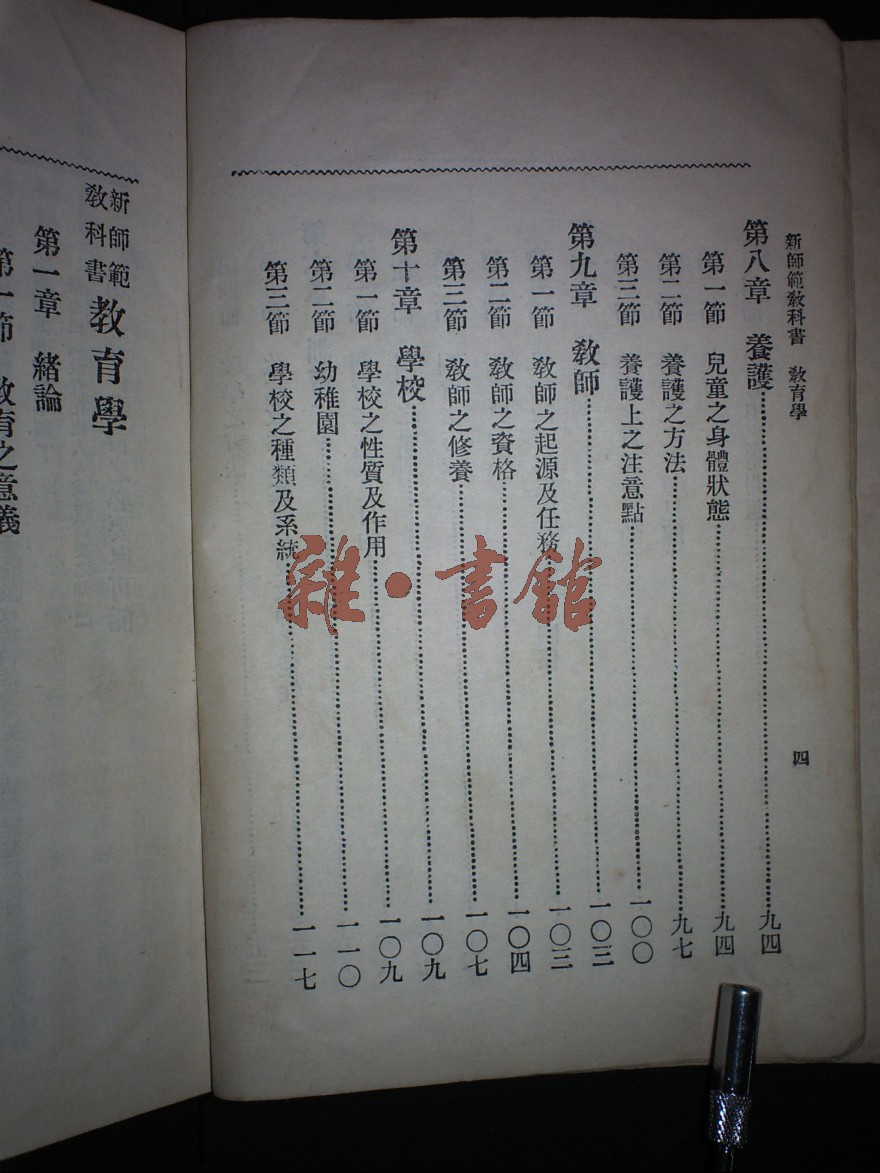 新師範教科書　教育學
四
第八章　養護……九四
第一節　兒童之身體狀態……九四
第二節　養護之方法……九七
第三節　養護上之注意點……一〇〇
第九章　教師……一〇三
第一節　教師之起源及任務……一〇三
第二節　教師之資格……一〇四
第三節　教師之修養……一〇七
第十章　學校……一〇九
第一節　學校之性質及作用……一〇九
第二節　幼稚園……一一〇
第三節　學校之種類及系統……一一七
雜·書館
新師範
教科書
教育學
第一章　緒論
第一節　教育之意義